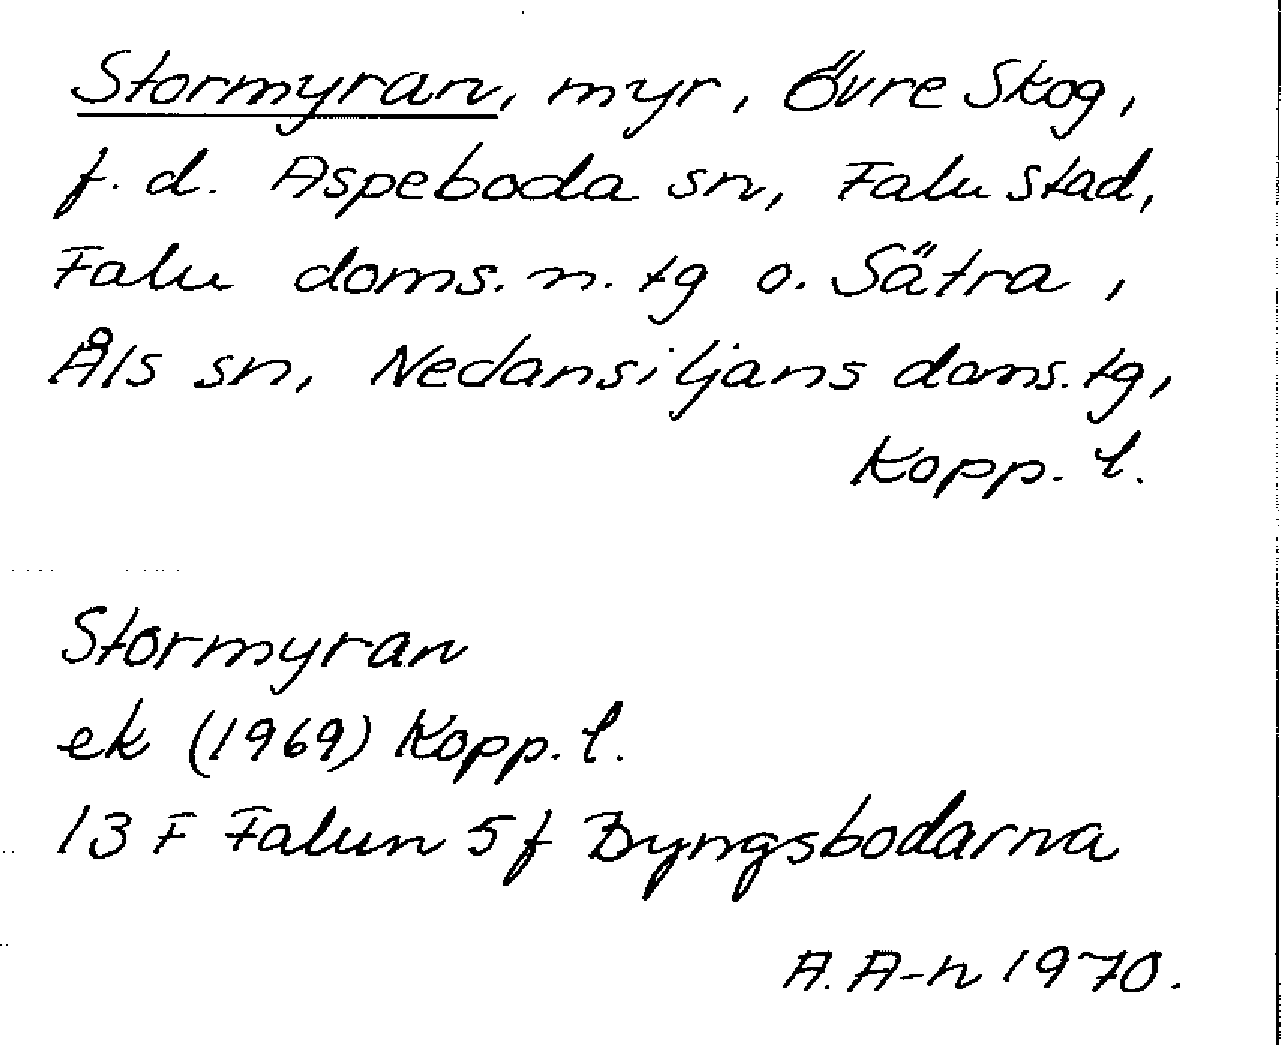 Stormyran, myr, Övre Skog,
f.d. Aspeboda sn, Falu stad,
Falu doms. n. tg o. Sätra,
Åls sn, Nedansiljans doms. tg,
Kopp. l.
Stormyran
ek (1969) Kopp. l.
13 F Falun 5 f Dyngsbodarna
A. A-n 1970.